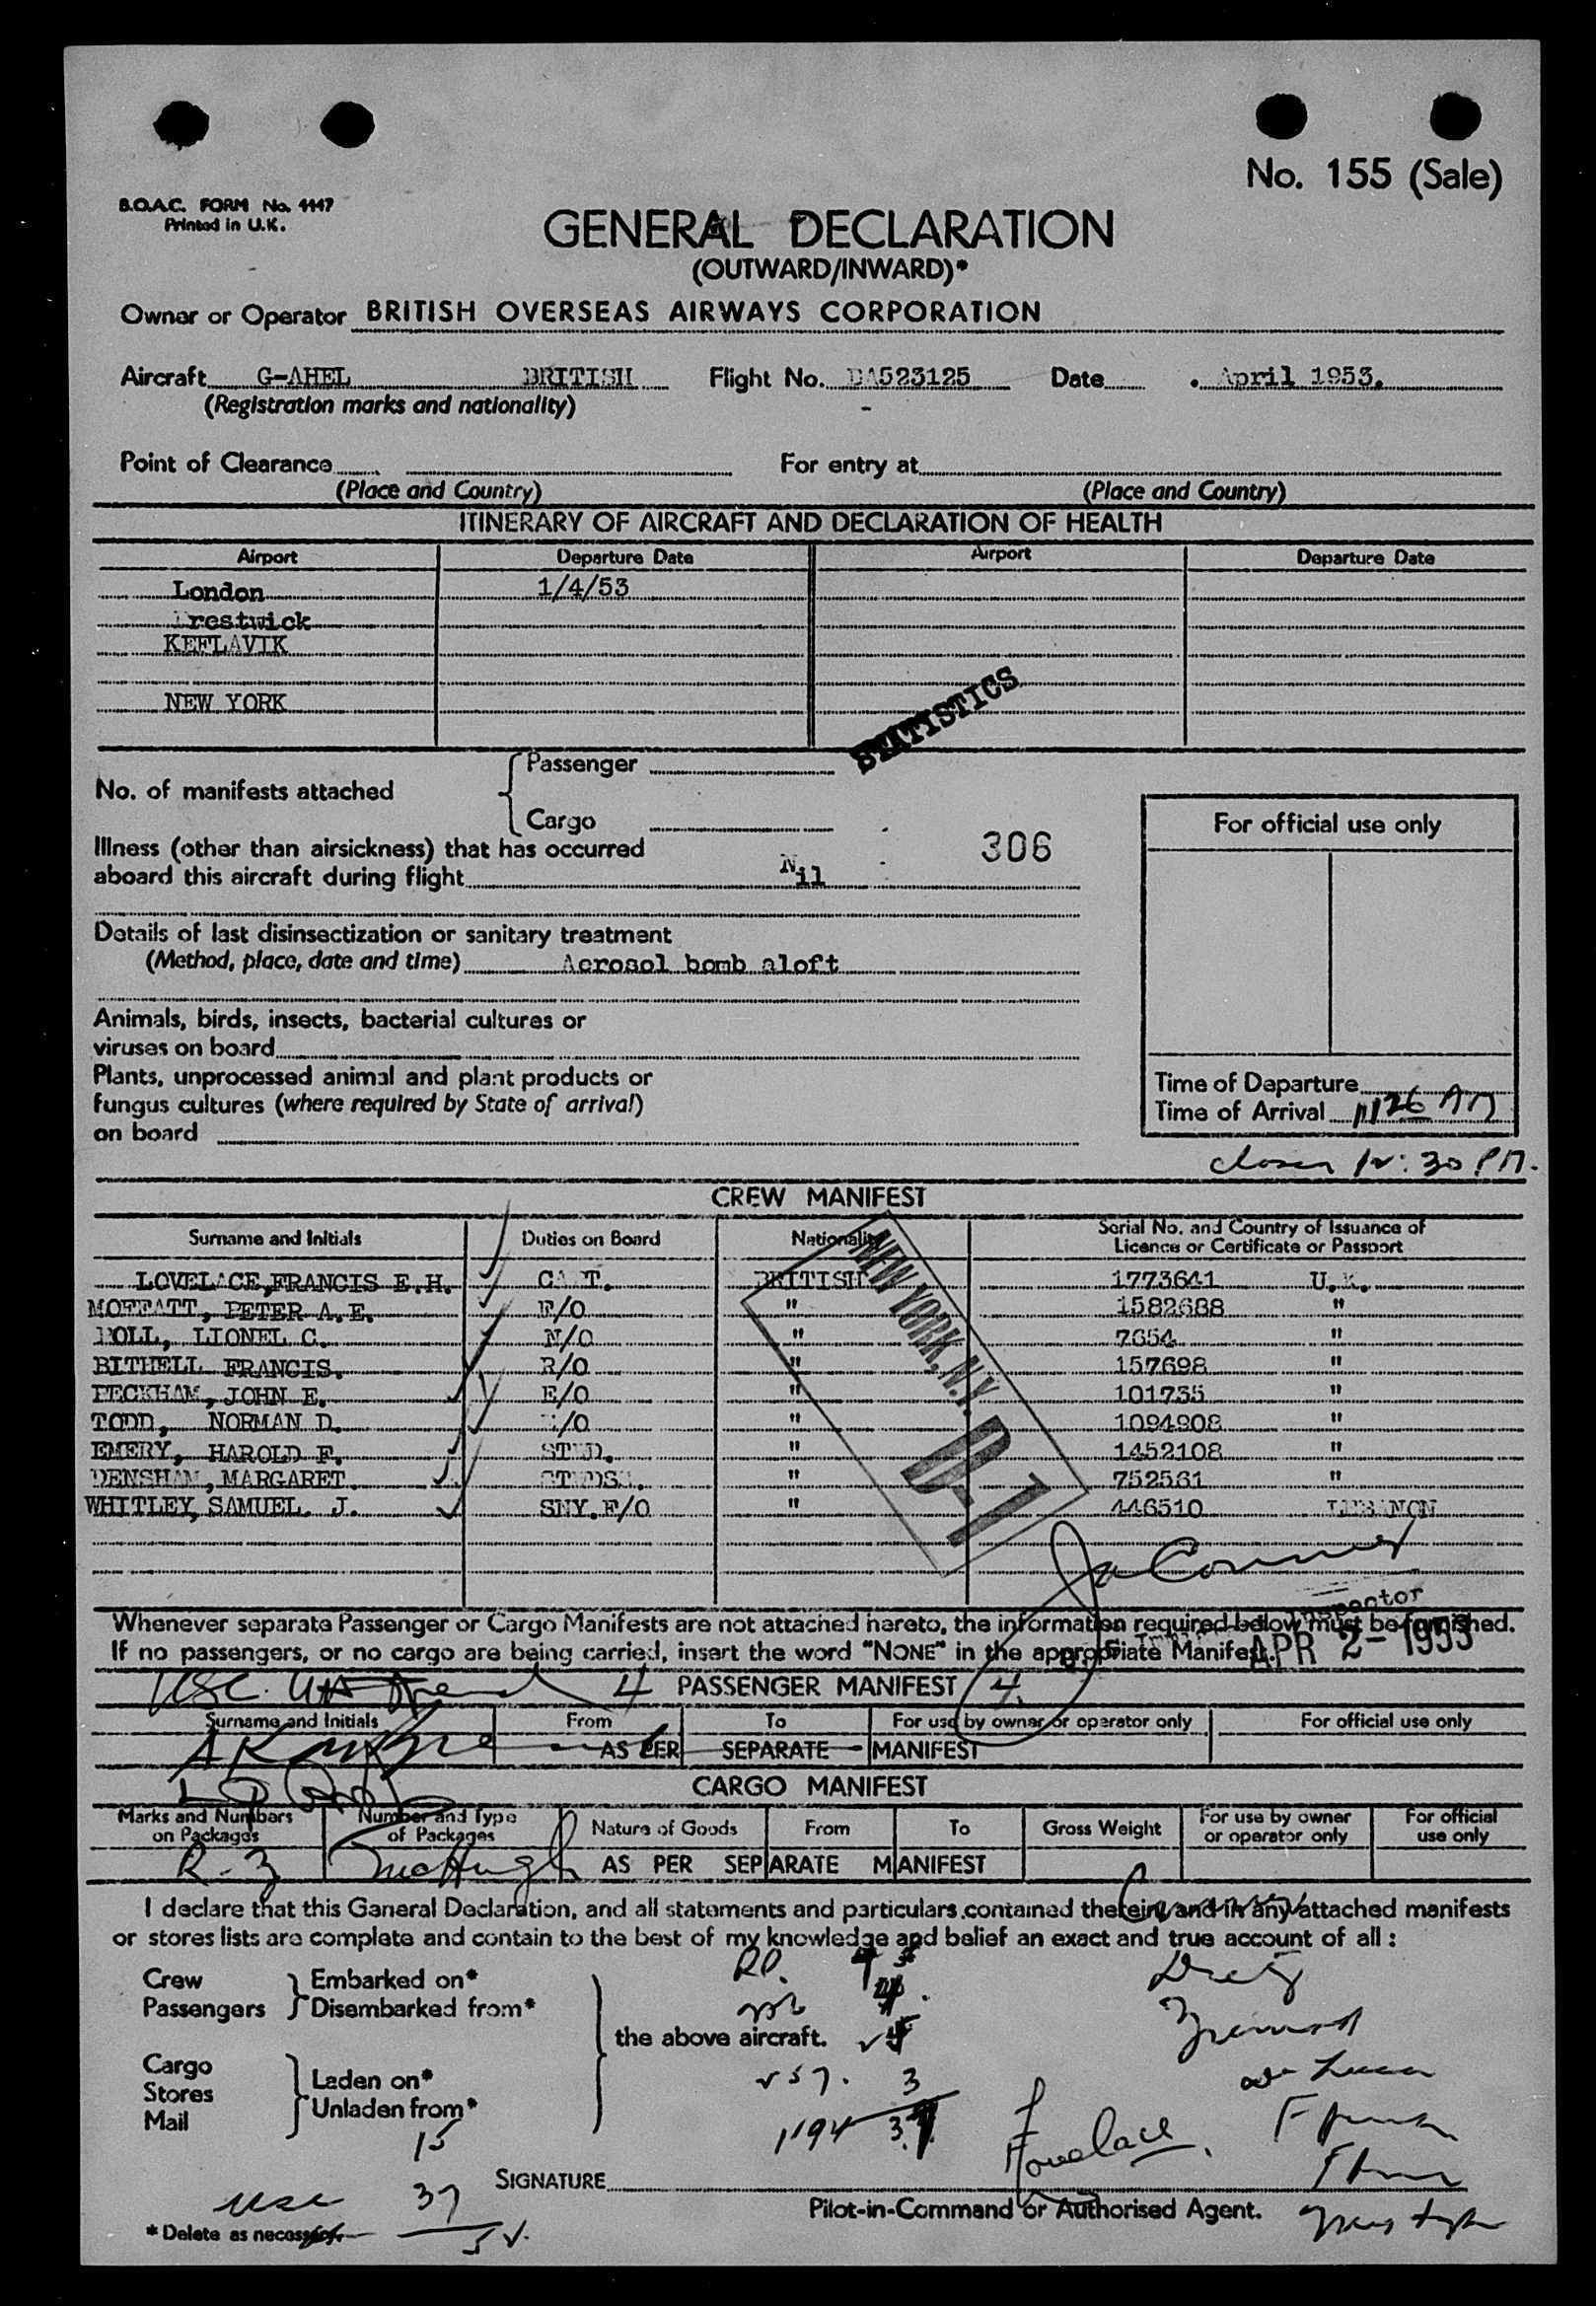 No. 155 (Sale)
B.O.A.C. FORM No. 4447
Printed in U.K.
GENERAL DECLARATION
(OUTWARD/INWARD)*
Owner or Operator BRITISH OVERSEAS AIRWAYS CORPORATION
Aircraft G-AHEL BRITISH Flight No. BA523125 Date April 1953.
(Registration marks and nationality)
Point of Clearance For entry at
(Place and Country) (Place and Country)
ITINERARY OF AIRCRAFT AND DECLARATION OF HEALTH
Airport Departure Date Airport Departure Date
London 1/4/53
Prestwick
KEFLAVIK
NEW YORK
STATISTICS
No. of manifests attached
Passenger
Cargo
306
Illness (other than airsickness) that has occurred
aboard this aircraft during flight Nil
Details of last disinsectization or sanitary treatment
(Method, place, date and time) Aerosol bomb aloft
Animals, birds, insects, bacterial cultures or
viruses on board
Plants, unprocessed animal and plant products or
fungus cultures (where required by State of arrival)
on board
For official use only
Time of Departure
Time of Arrival 1126 AM
12:30 PM.
CREW MANIFEST
Surname and Initials Duties on Board Nationality Serial No. and Country of Issuance of
Licence or Certificate or Passport
LOVELACE, FRANCIS E.H. CAPT. BRITISH 1773641 U.K.
MOFFATT, PETER A.E. F/O " 1582688 "
POLL, LIONEL C. N/O " 7654 "
BITHELL FRANCIS. R/O " 157698 "
PECKHAM, JOHN E. E/O " 101735 "
TODD, NORMAN D. /O " 1094908 "
EMERY, HAROLD F. STWD. " 1452108 "
DENSHAM, MARGARET. STWDSS. " 752561 "
WHITLEY, SAMUEL J. SNY.F/O " 446510 LEBANON
NEW YORK, N.Y.
D-1
Inspector
APR 2- 1953
Whenever separate Passenger or Cargo Manifests are not attached hereto, the information required below must be furnished.
If no passengers, or no cargo are being carried, insert the word "NONE" in the appropriate Manifest.
4 PASSENGER MANIFEST 4
Surname and Initials From To For use by owner or operator only For official use only
AS PER SEPARATE MANIFEST
CARGO MANIFEST
Marks and Numbers on Packages Number and Type of Packages Nature of Goods From To Gross Weight For use by owner or operator only For official use only
R-3 McHugh AS PER SEPARATE MANIFEST
I declare that this General Declaration, and all statements and particulars contained therein, and in any attached manifests
or stores lists are complete and contain to the best of my knowledge and belief an exact and true account of all :
Crew Embarked on*
Passengers Disembarked from*
the above aircraft.
Cargo
Stores
Mail
Laden on*
Unladen from*
15
37
Lovelace
SIGNATURE
Pilot-in-Command or Authorised Agent.
* Delete as necessary